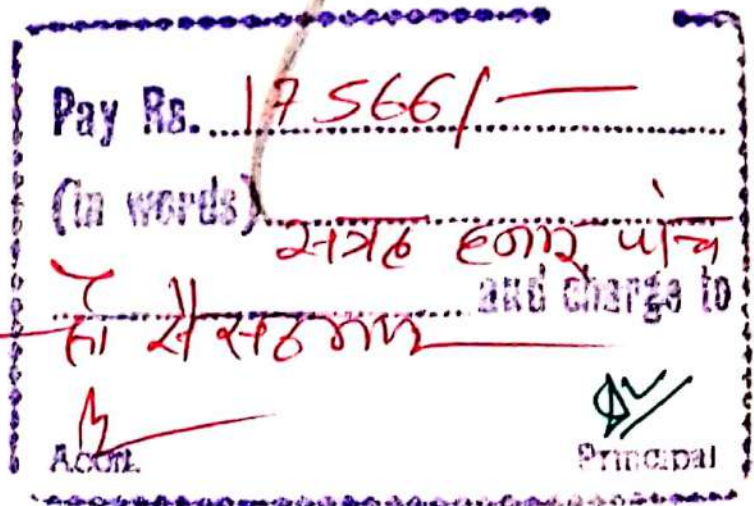 Pay Rs. 17566/-
(in words) सत्रह हजार पांच
सौ and charge to
Acctt. Principal